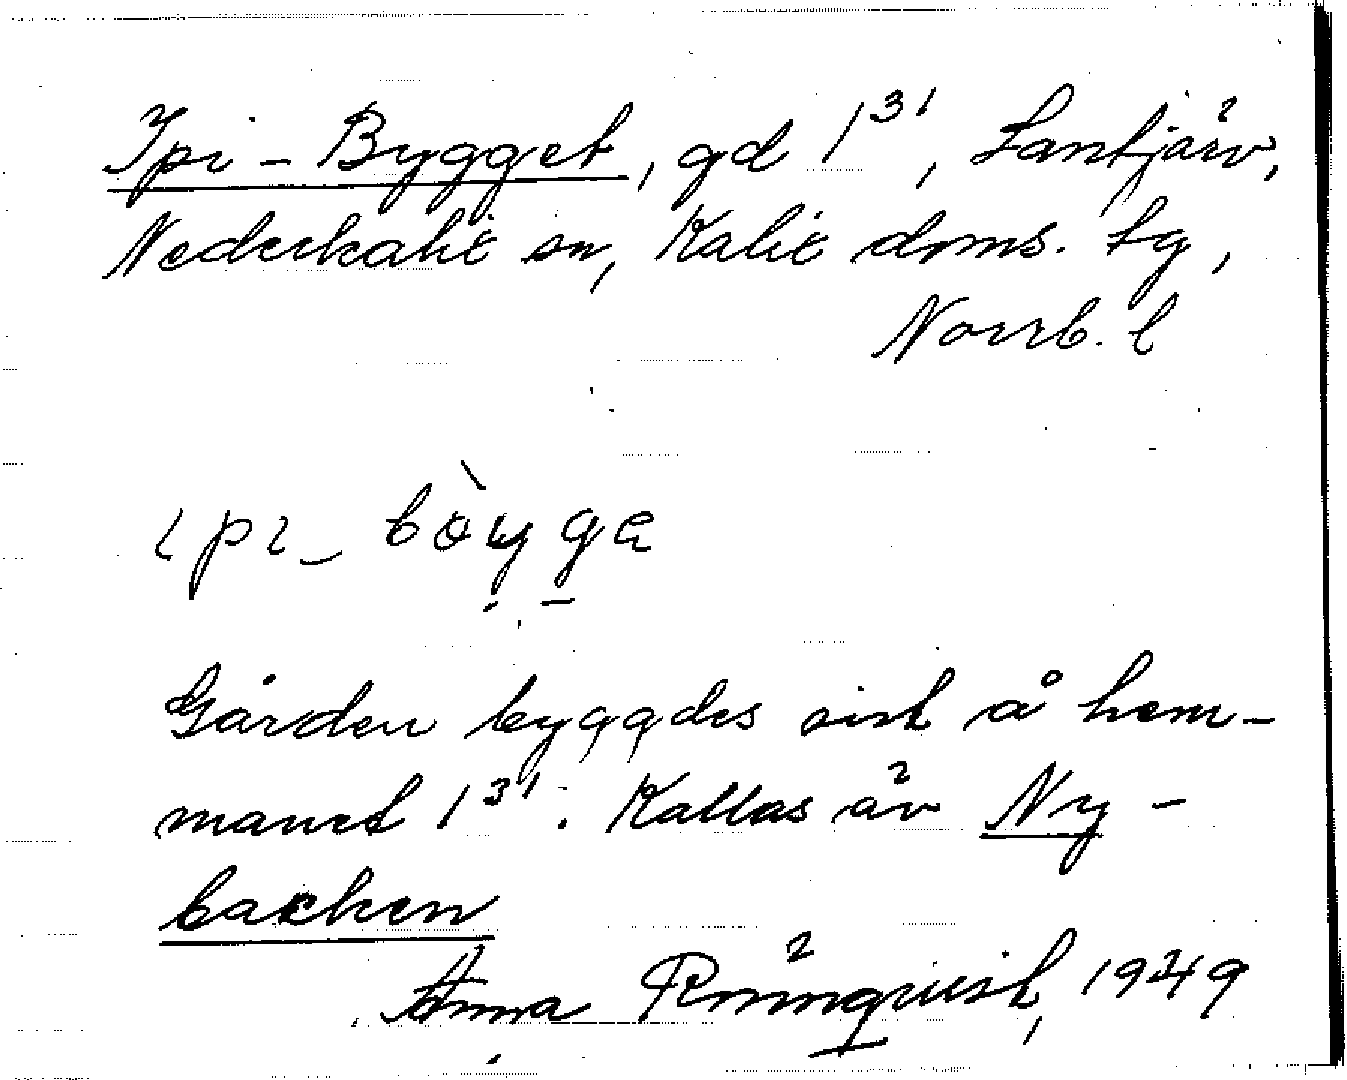 Ipi-Bygget, gd 1³¹, Säntjärv,
Nederkalix sn, Kalix doms. tg,
Norrb. l
ıpı_ bòyga
Gården byggdes sist å hem-
manet 1³¹. Kallas äv Ny-
backen
Anna Rönnqvist, 1949